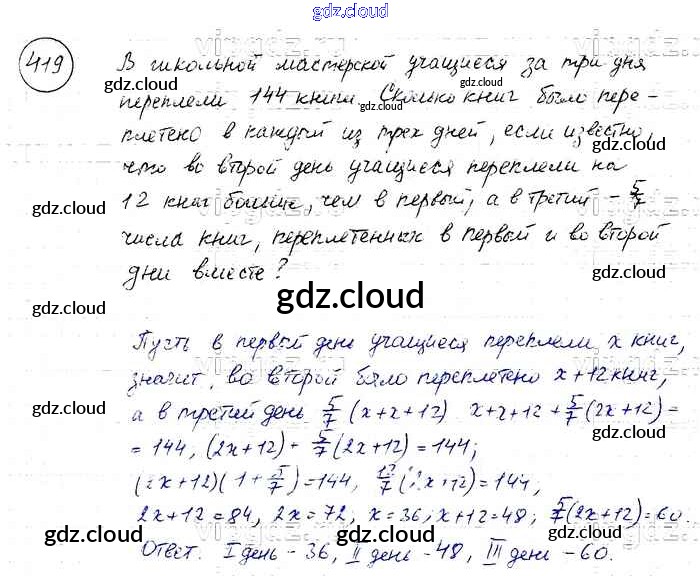 gdz.cloud
419 В школьной мастерской учащиеся за три дня
переплели 144 книги. Сколько книг было пере-
плетено в каждый из трех дней, если известно,
что во второй день учащиеся переплели на
12 книг больше, чем в первый, а в третий - 5/7
числа книг, переплетенных в первый и во второй
дни вместе?
gdz.cloud
Пусть в первый день учащиеся переплели x книг,
значит, во второй было переплетено x+12 книг,
а в третий день 5/7 (x+x+12) x+x+12+5/7(2x+12)=
=144, (2x+12)+5/7(2x+12)=144;
(2x+12)(1+5/7)=144, 12/7(2x+12)=144,
2x+12=84, 2x=72, x=36, x+12=48; 5/7(2x+12)=60.
Ответ. I день - 36, II день - 48, III день - 60.